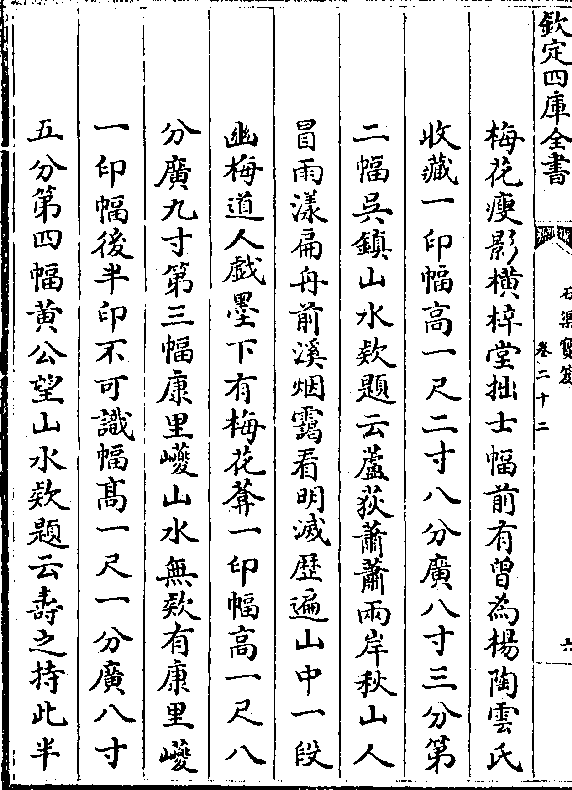 欽定四庫全書
石渠寶笈
卷二十二
六
梅花瘦影橫梓堂拙士幅前有曾為楊陶雲氏
收藏一印幅高一尺二寸八分廣八寸三分第
二幅吳鎮山水欵題云蘆荻蕭蕭兩岸秋山人
冒雨漾扁舟前溪烟靄看明滅歷遍山中一段
幽梅道人戯墨下有梅花菴一印幅高一尺八
分廣九寸第三幅康里巙山水無欵有康里巙
一印幅後半印不可識幅髙一尺一分廣八寸
五分第四幅黄公望山水欵題云壽之持此半